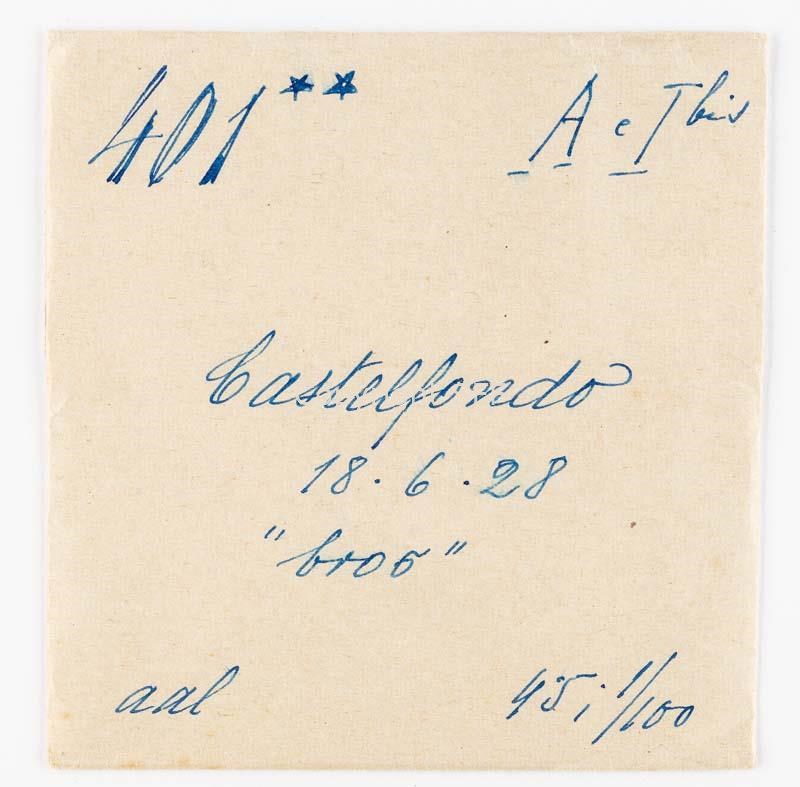 401** A e I bis
Castelfondo
18.6.28
"broo"
aal 45; 1/100